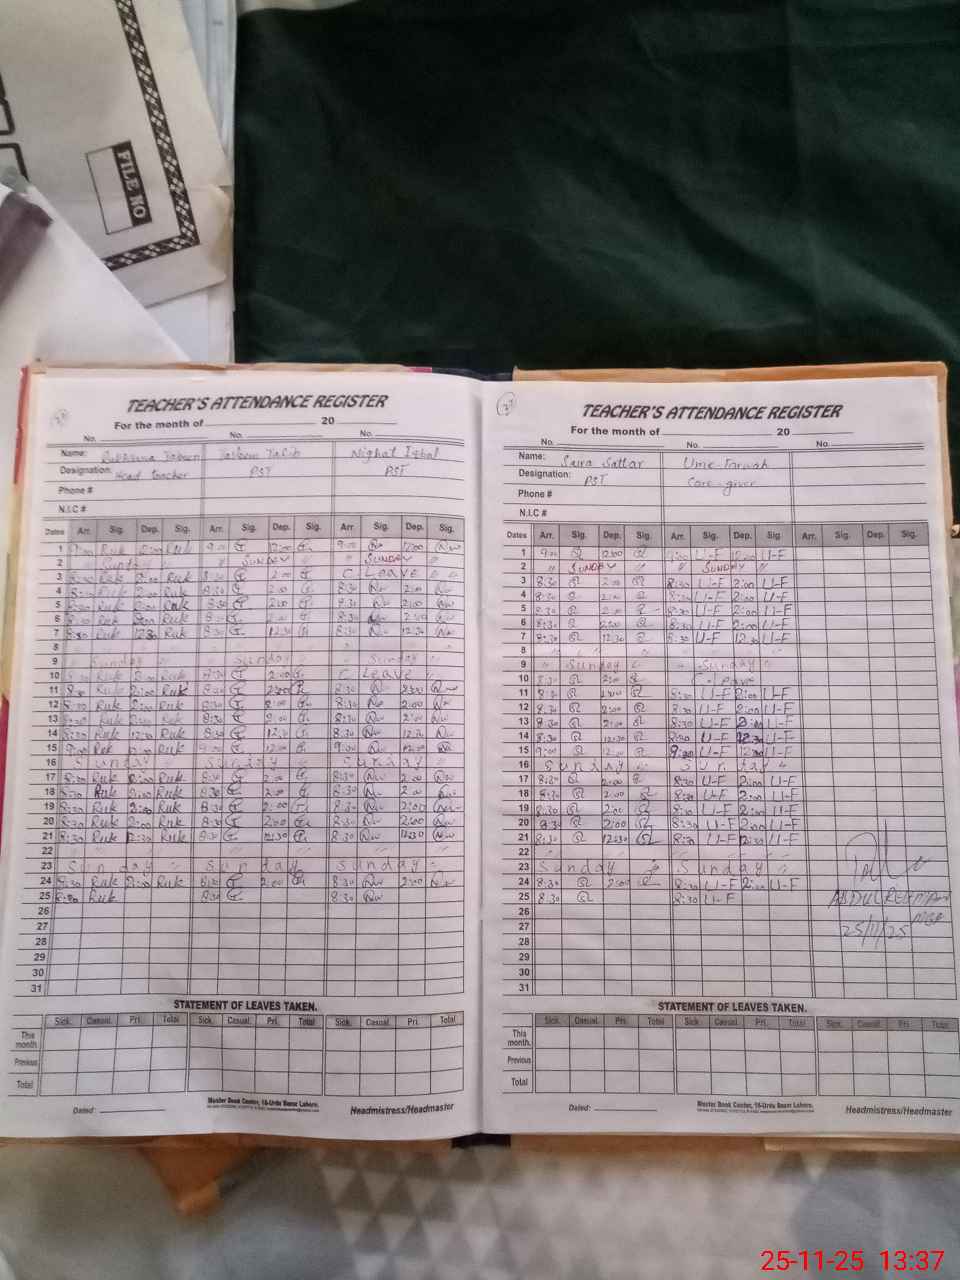 FILE NO
TEACHER'S ATTENDANCE REGISTER
For the month of 20
No. No. No.
Name: Tasleem Nighat Iqbal
Designation: Head teacher PST PST
Phone #
N.I.C #
Dates Arr. Sig. Dep. Sig. Arr. Sig. Dep. Sig. Arr. Sig. Dep. Sig.
1 9:00 Ruk 12:00 Ruk 9:00 12:00 9:00 12:00
2 " Sunday " " SUNDAY " " SUNDAY "
3 8:30 Ruk 2:00 Ruk 8:30 2:00 C Leave
4 8:30 Ruk 2:00 Ruk 8:30 2:00 8:30 2:00
5 8:30 Ruk 2:00 Ruk 8:30 2:00 8:30 2:00
6 8:30 Ruk 2:00 Ruk 8:30 2:00 8:30 2:00
7 8:30 Ruk 12:30 Ruk 8:30 12:30 8:30 12:30
8
9 Sunday Sunday Sunday
10 8:30 Ruk 2:00 Ruk 8:30 2:00 C Leave
11 8:30 Ruk 2:00 Ruk 8:30 2:00 8:30 2:00
12 8:30 Ruk 2:00 Ruk 8:30 2:00 8:30 2:00
13 8:30 Ruk 2:00 Ruk 8:30 2:00 8:30 2:00
14 8:30 Ruk 12:30 Ruk 8:30 12:30 8:30 12:30
15 9:00 Ruk 12:00 Ruk 9:00 12:00 9:00 12:00
16 Sunday Sunday Sunday
17 8:30 Ruk 2:00 Ruk 8:30 2:00 8:30 2:00
18 8:30 Ruk 2:00 Ruk 8:30 2:00 8:30 2:00
19 8:30 Ruk 2:00 Ruk 8:30 2:00 8:30 2:00
20 8:30 Ruk 2:00 Ruk 8:30 2:00 8:30 2:00
21 8:30 Ruk 12:30 Ruk 8:30 12:30 8:30 1230
22
23 Sunday Sunday Sunday
24 8:30 Ruk 2:00 Ruk 8:30 2:00 8:30 2:00
25 8:30 Ruk 8:30 8:30
26
27
28
29
30
31
STATEMENT OF LEAVES TAKEN.
Sick. Casual. Pri. Total Sick. Casual. Pri. Total Sick. Casual. Pri. Total
This month.
Previous
Total
Master Book Center, 16-Urdu Bazar Lahore.
Dated: Headmistress/Headmaster
TEACHER'S ATTENDANCE REGISTER
For the month of 20
No. No. No.
Name: Saira Sattar Ume-
Designation: PST Care-giver
Phone #
N.I.C #
Dates Arr. Sig. Dep. Sig. Arr. Sig. Dep. Sig. Arr. Sig. Dep. Sig.
1 9:00 12:00 9:00 U-F 12:00 U-F
2 " SUNDAY " " SUNDAY "
3 8:30 2:00 8:30 U-F 2:00 U-F
4 8:30 2:00 8:30 U-F 2:00 U-F
5 8:30 2:00 8:30 U-F 2:00 U-F
6 8:30 2:00 8:30 U-F 2:00 U-F
7 8:30 12:30 8:30 U-F 12:30 U-F
8
9 " Sunday " " Sunday "
10 8:30 2:00
11 8:30 2:00 8:30 U-F 2:00 U-F
12 8:30 2:00 8:30 U-F 2:00 U-F
13 8:30 2:00 8:30 U-F 2:00 U-F
14 8:30 12:30 8:30 U-F 12:30 U-F
15 9:00 12:00 9:00 U-F 12:00 U-F
16 Sunday Sunday
17 8:30 2:00 8:30 U-F 2:00 U-F
18 8:30 2:00 8:30 U-F 2:00 U-F
19 8:30 2:00 8:30 U-F 2:00 U-F
20 8:30 2:00 8:30 U-F 2:00 U-F
21 8:30 1230 8:30 U-F 12:30 U-F
22
23 Sunday Sunday
24 8:30 2:00 8:30 U-F 2:00 U-F
25 8:30 8:30 U-F
ABDUL REHMAN
25/11/25
26
27
28
29
30
31
STATEMENT OF LEAVES TAKEN.
Sick. Casual. Pri. Total Sick. Casual. Pri. Total Sick. Casual. Pri. Total
This month.
Previous
Total
Master Book Center, 16-Urdu Bazar Lahore.
Dated: Headmistress/Headmaster
25-11-25 13:37